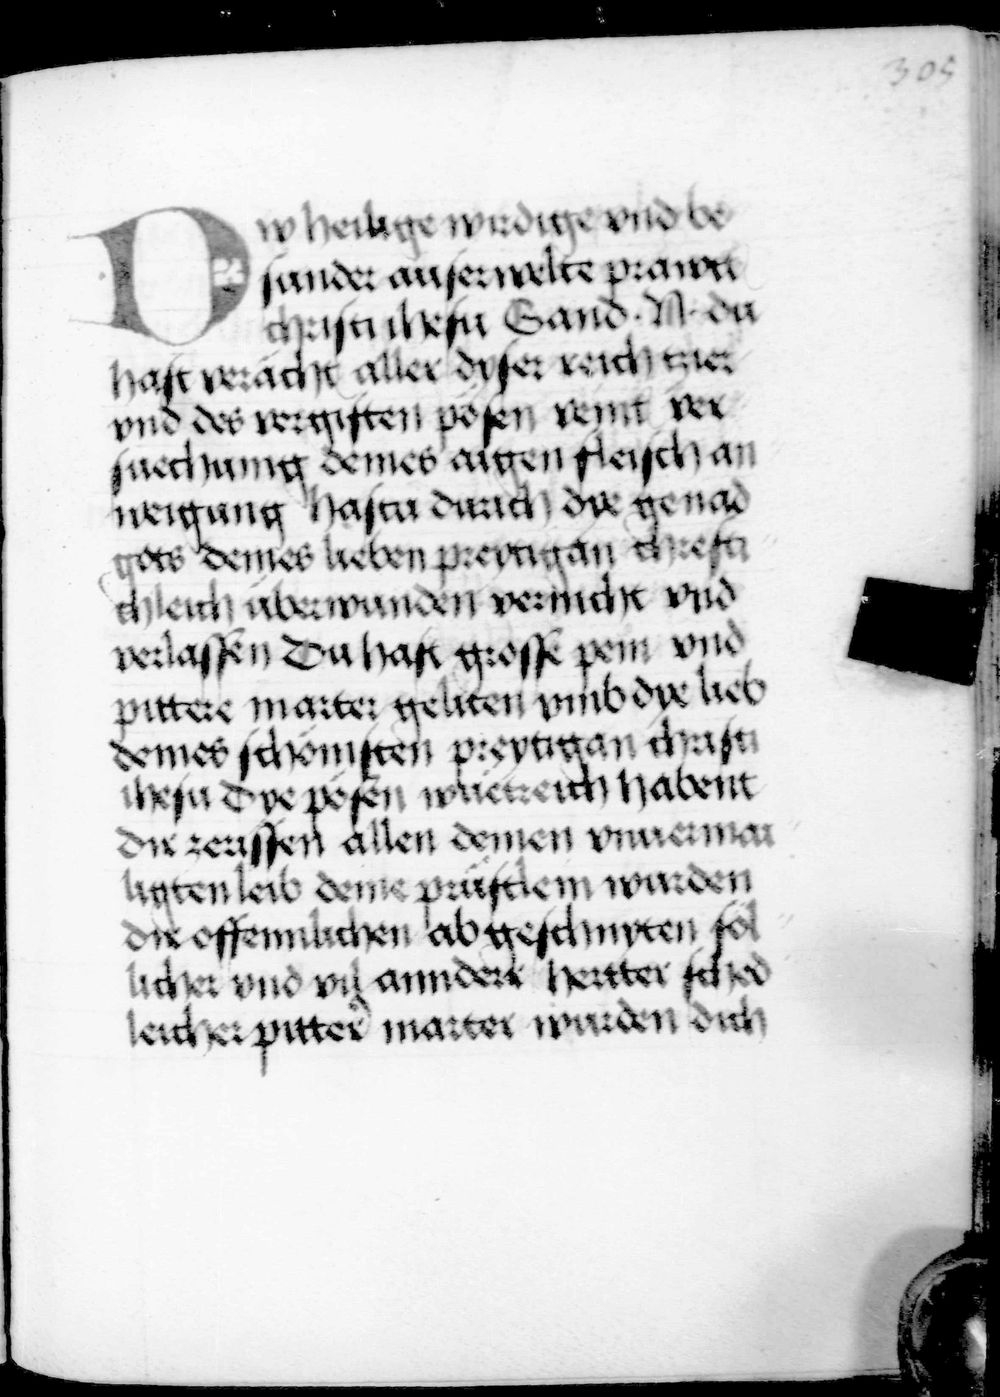 305
Dw heilige wirdige vnd be
sunder auserwelte prawtt
christi ihesu Sand · N · du
hast veracht aller dyser reich tzier
vnd des vergiften pösen veint ver
suechunng deines aigen fleisch an
weigung hastu durich dye genad
gots deines lieben preytigan christi
chleich überwunden vernicht vnd
verlassen Du hast grosse pein vnd
pittere marter geliten vmb dye lieb
deines schönisten preytigan christi
ihesu Dye pösen wüetreich habent
dir zerissen allen deinen vnuermai
ligten leib deine prüstlein wurden
dir offennlichen ab geschnyten söl
licher vnd vil annderr hertter sched
leicher pitter marter wurden dich